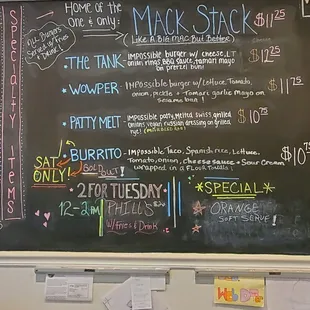 Specialty Items
All Burgers
Served w/Fries
+ Drink!
Home of the
One & only:
MACK STACK $11.25
(Like A Big Mac But Better)
• THE TANK - Impossible burger w/cheese, LT
onion rings, BBQ sauce, tamari mayo
on pretzel bun $12.25
• WOWPER - Impossible burger w/Lettuce, Tomato,
onion, pickle + Tamari garlic mayo on
sesame bun! $11.75
PATTY MELT - Impossible patty, Melted swiss, grilled
onions, vegan russian dressing on grilled
rye! $10.75
SAT.
ONLY!
BURRITO - Impossible Taco, Spanish rice, Lettuce,
Tomato, onion, cheese sauce + Sour Cream
wrapped in a Flour $10.75
SOLD OUT!
2 FOR TUESDAY
12-2PM PHILLY'S
w/Fries & Drink
*SPECIAL*
ORANGE
SOFT SERVE!